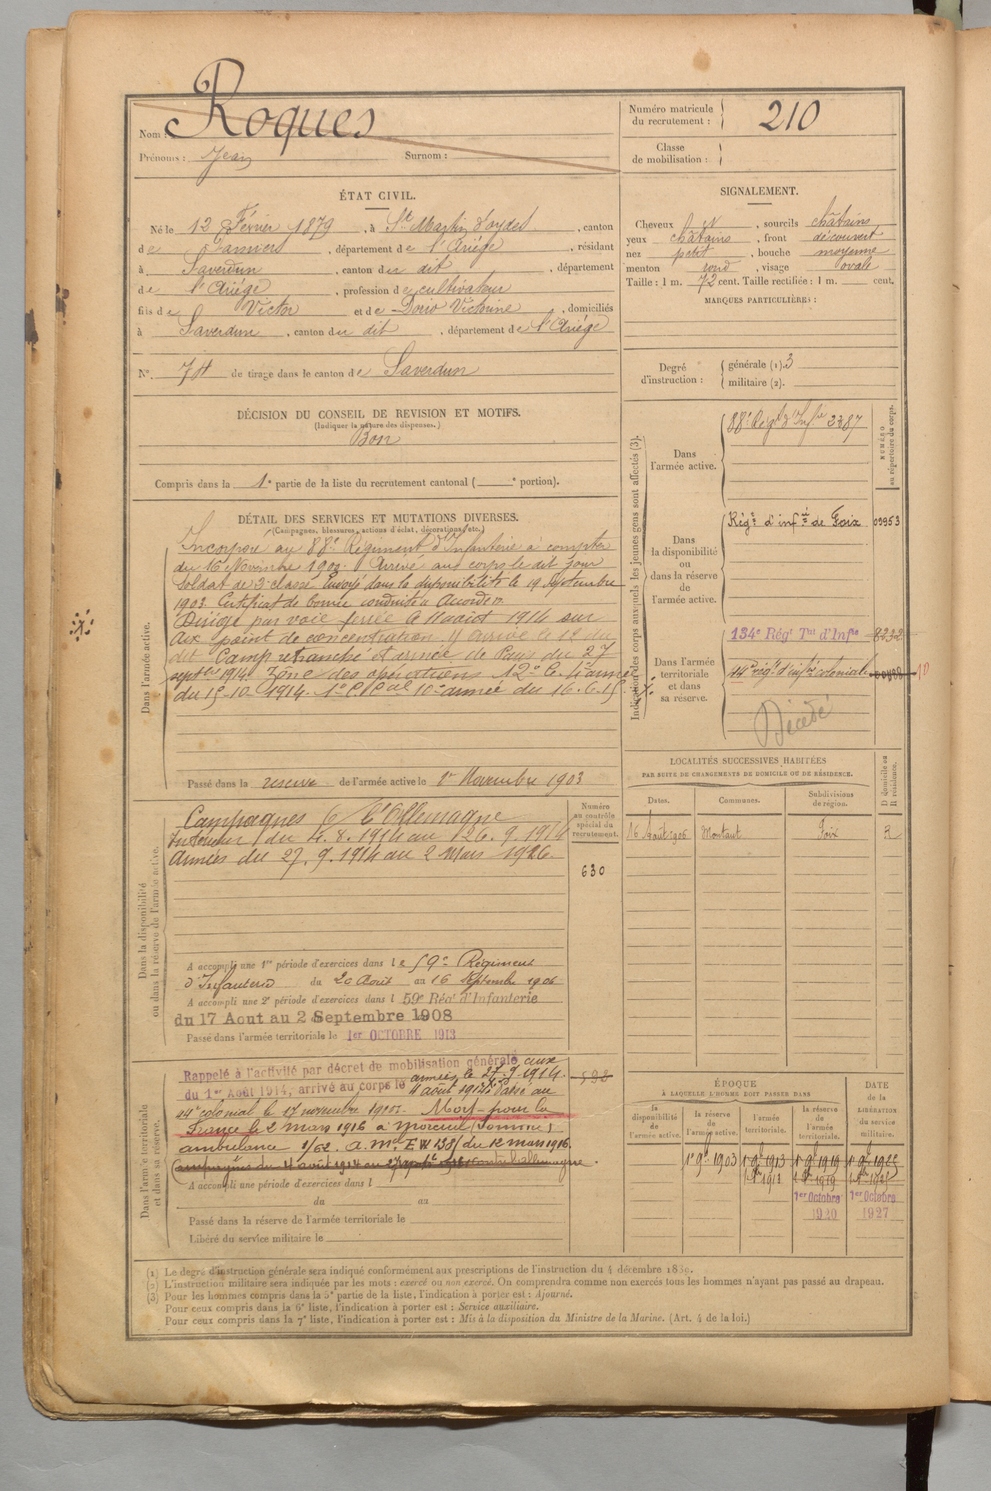 Nom : Roques
Prénoms : Jean Surnom :
Numéro matricule du recrutement : 210
Classe de mobilisation :
ÉTAT CIVIL.
Né le 12 Février 1879, à St Martin d'oydes, canton
de Pamiers, département de l'Ariége, résidant
à Saverdun, canton du dit, département
de l'Ariége, profession de cultivateur
fils de Victor et de Dorio Victorine, domiciliés
à Saverdun, canton du dit, département de l'Ariége
N° 74 de tirage dans le canton de Saverdun
SIGNALEMENT.
Cheveux et, sourcils châtains
yeux châtains, front découvert
nez petit, bouche moyenne
menton rond, visage ovale
Taille : 1 m. 72 cent. Taille rectifiée : 1 m. cent.
MARQUES PARTICULIÈRES :
Degré d'instruction : générale (1). 3
militaire (2).
DÉCISION DU CONSEIL DE REVISION ET MOTIFS.
(Indiquer la nature des dispenses.)
Bon
Compris dans la 1e partie de la liste du recrutement cantonal ( e portion).
DÉTAIL DES SERVICES ET MUTATIONS DIVERSES.
(Campagnes, blessures, actions d'éclat, décorations, etc.)
Dans l'armée active.
Incorporé au 88e Régiment d'Infanterie à compter
du 16 Novembre 1900. Arrivé au corps le dit jour
soldat de 2e classe. Envoyé dans la disponibilité le 19 septembre
1903. Certificat de bonne conduite Accordé.
Dirigé par voie ferrée le 11 août 1914 sur
Aux point de concentration. Y arrive le 12 du
dit Camp retranché et armée de Paris du 27
septbre 1914. Zône des opérations 12e C. 4e armée
du 15-10-1914. 1e C. Cal 10e armée du 16.6.15
Passé dans la réserve de l'armée active le 1er Novembre 1903
Indication des corps auxquels les jeunes gens sont affectés (3).
NUMÉRO au répertoire du corps.
Dans l'armée active.
88e Régt d'Infie 3387
Dans la disponibilité ou dans la réserve de l'armée active.
Régt d'infrie de Foix 09953
Dans l'armée territoriale et dans sa réserve.
134e Régt Tal d'Infie 8232
44e régt d'infie coloniale
Décédé
LOCALITÉS SUCCESSIVES HABITÉES
PAR SUITE DE CHANGEMENTS DE DOMICILE OU DE RÉSIDENCE.
Dates. Communes. Subdivisions de région. D domicile ou R résidence.
16 Août 1906 Montaut Foix R
Dans la disponibilité ou dans la réserve de l'armée active.
Numéro au contrôle spécial du recrutement.
630
Campagnes C/ l'Allemagne
Intérieur du 4.8.1914 au 26.9.1914
Armées du 27.9.1914 au 2 Mars 1926.
A accompli une 1re période d'exercices dans le 59e Régiment
d'Infanterie du 20 Août au 16 Septembre 1906
A accompli une 2e période d'exercices dans l 59e Régt d'Infanterie
du 17 Aout au 2 Septembre 1908
Passé dans l'armée territoriale le 1er OCTOBRE 1913
Dans l'armée territoriale et dans sa réserve.
Rappelé à l'activité par décret de mobilisation générale aux
armées le 27-9-1914.
du 1er Août 1914, arrivé au corps le 4 août 1914. Passé au
44e colonial le 17 novembre 1915. Mort pour la
France le 2 mars 1916 à Moreuil (Somme)
ambulance 1/62. A. Mel EW 238 du 12 mars 1916.
A accompli une période d'exercices dans l
du au
Passé dans la réserve de l'armée territoriale le
Libéré du service militaire le
ÉPOQUE
À LAQUELLE L'HOMME DOIT PASSER DANS
la disponibilité de l'armée active. la réserve de l'armée active. l'armée territoriale. la réserve de l'armée territoriale. DATE de la LIBÉRATION du service militaire.
1er 9bre 1903 1er 9bre 1913 1er 9bre 1919 1er 9bre 1922
1er Octobre 1er Octobre
1920 1927
(1) Le degré d'instruction générale sera indiqué conformément aux prescriptions de l'instruction du 4 décembre 1889.
(2) L'instruction militaire sera indiquée par les mots : exercé ou non exercé. On comprendra comme non exercés tous les hommes n'ayant pas passé au drapeau.
(3) Pour les hommes compris dans la 5e partie de la liste, l'indication à porter est : Ajourné.
Pour ceux compris dans la 6e liste, l'indication à porter est : Service auxiliaire.
Pour ceux compris dans la 7e liste, l'indication à porter est : Mis à la disposition du Ministre de la Marine. (Art. 4 de la loi.)